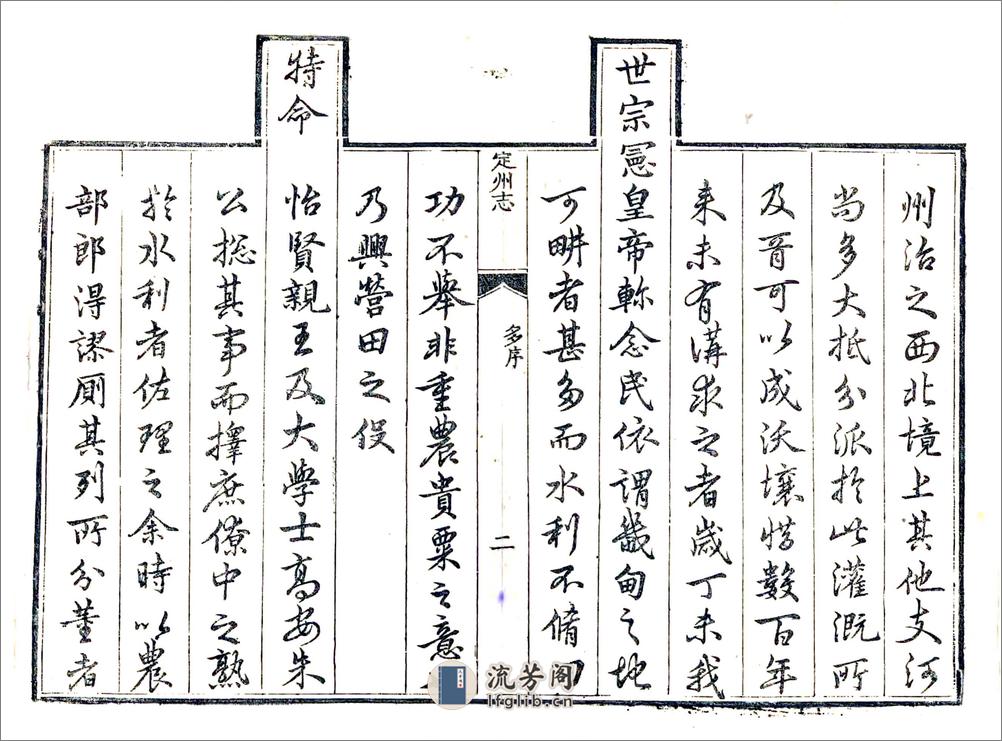 州治之西北境上其他支河
尚多大抵分派於此灌溉所
及胥可以成沃壤惜數百年
来未有講求之者歲丁未我
世宗憲皇帝軫念民依謂畿甸之地
可畊者甚多而水利不脩田
定州志
多序
二
功不舉非重農貴粟之意
乃興營田之役
特命
怡賢親王及大學士高安朱
公捴其事而擇庶僚中之熟
於水利者佐理之余時以農
部郎得謬厠其列所分董者
流芳阁
lfglib.cn